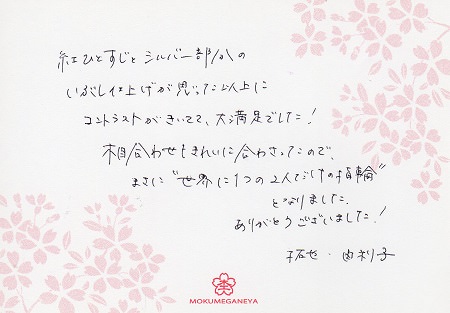 紅ひとすじとシルバー部分の
いぶし仕上げが思った以上に
コントラストがきいてて、大満足でした！
木目合わせもきれいに合わさってたので、
まさに"世界に1つの2人だけの指輪"
となりました。
ありがとうございました！
拓也・由利子
MOKUMEGANEYA